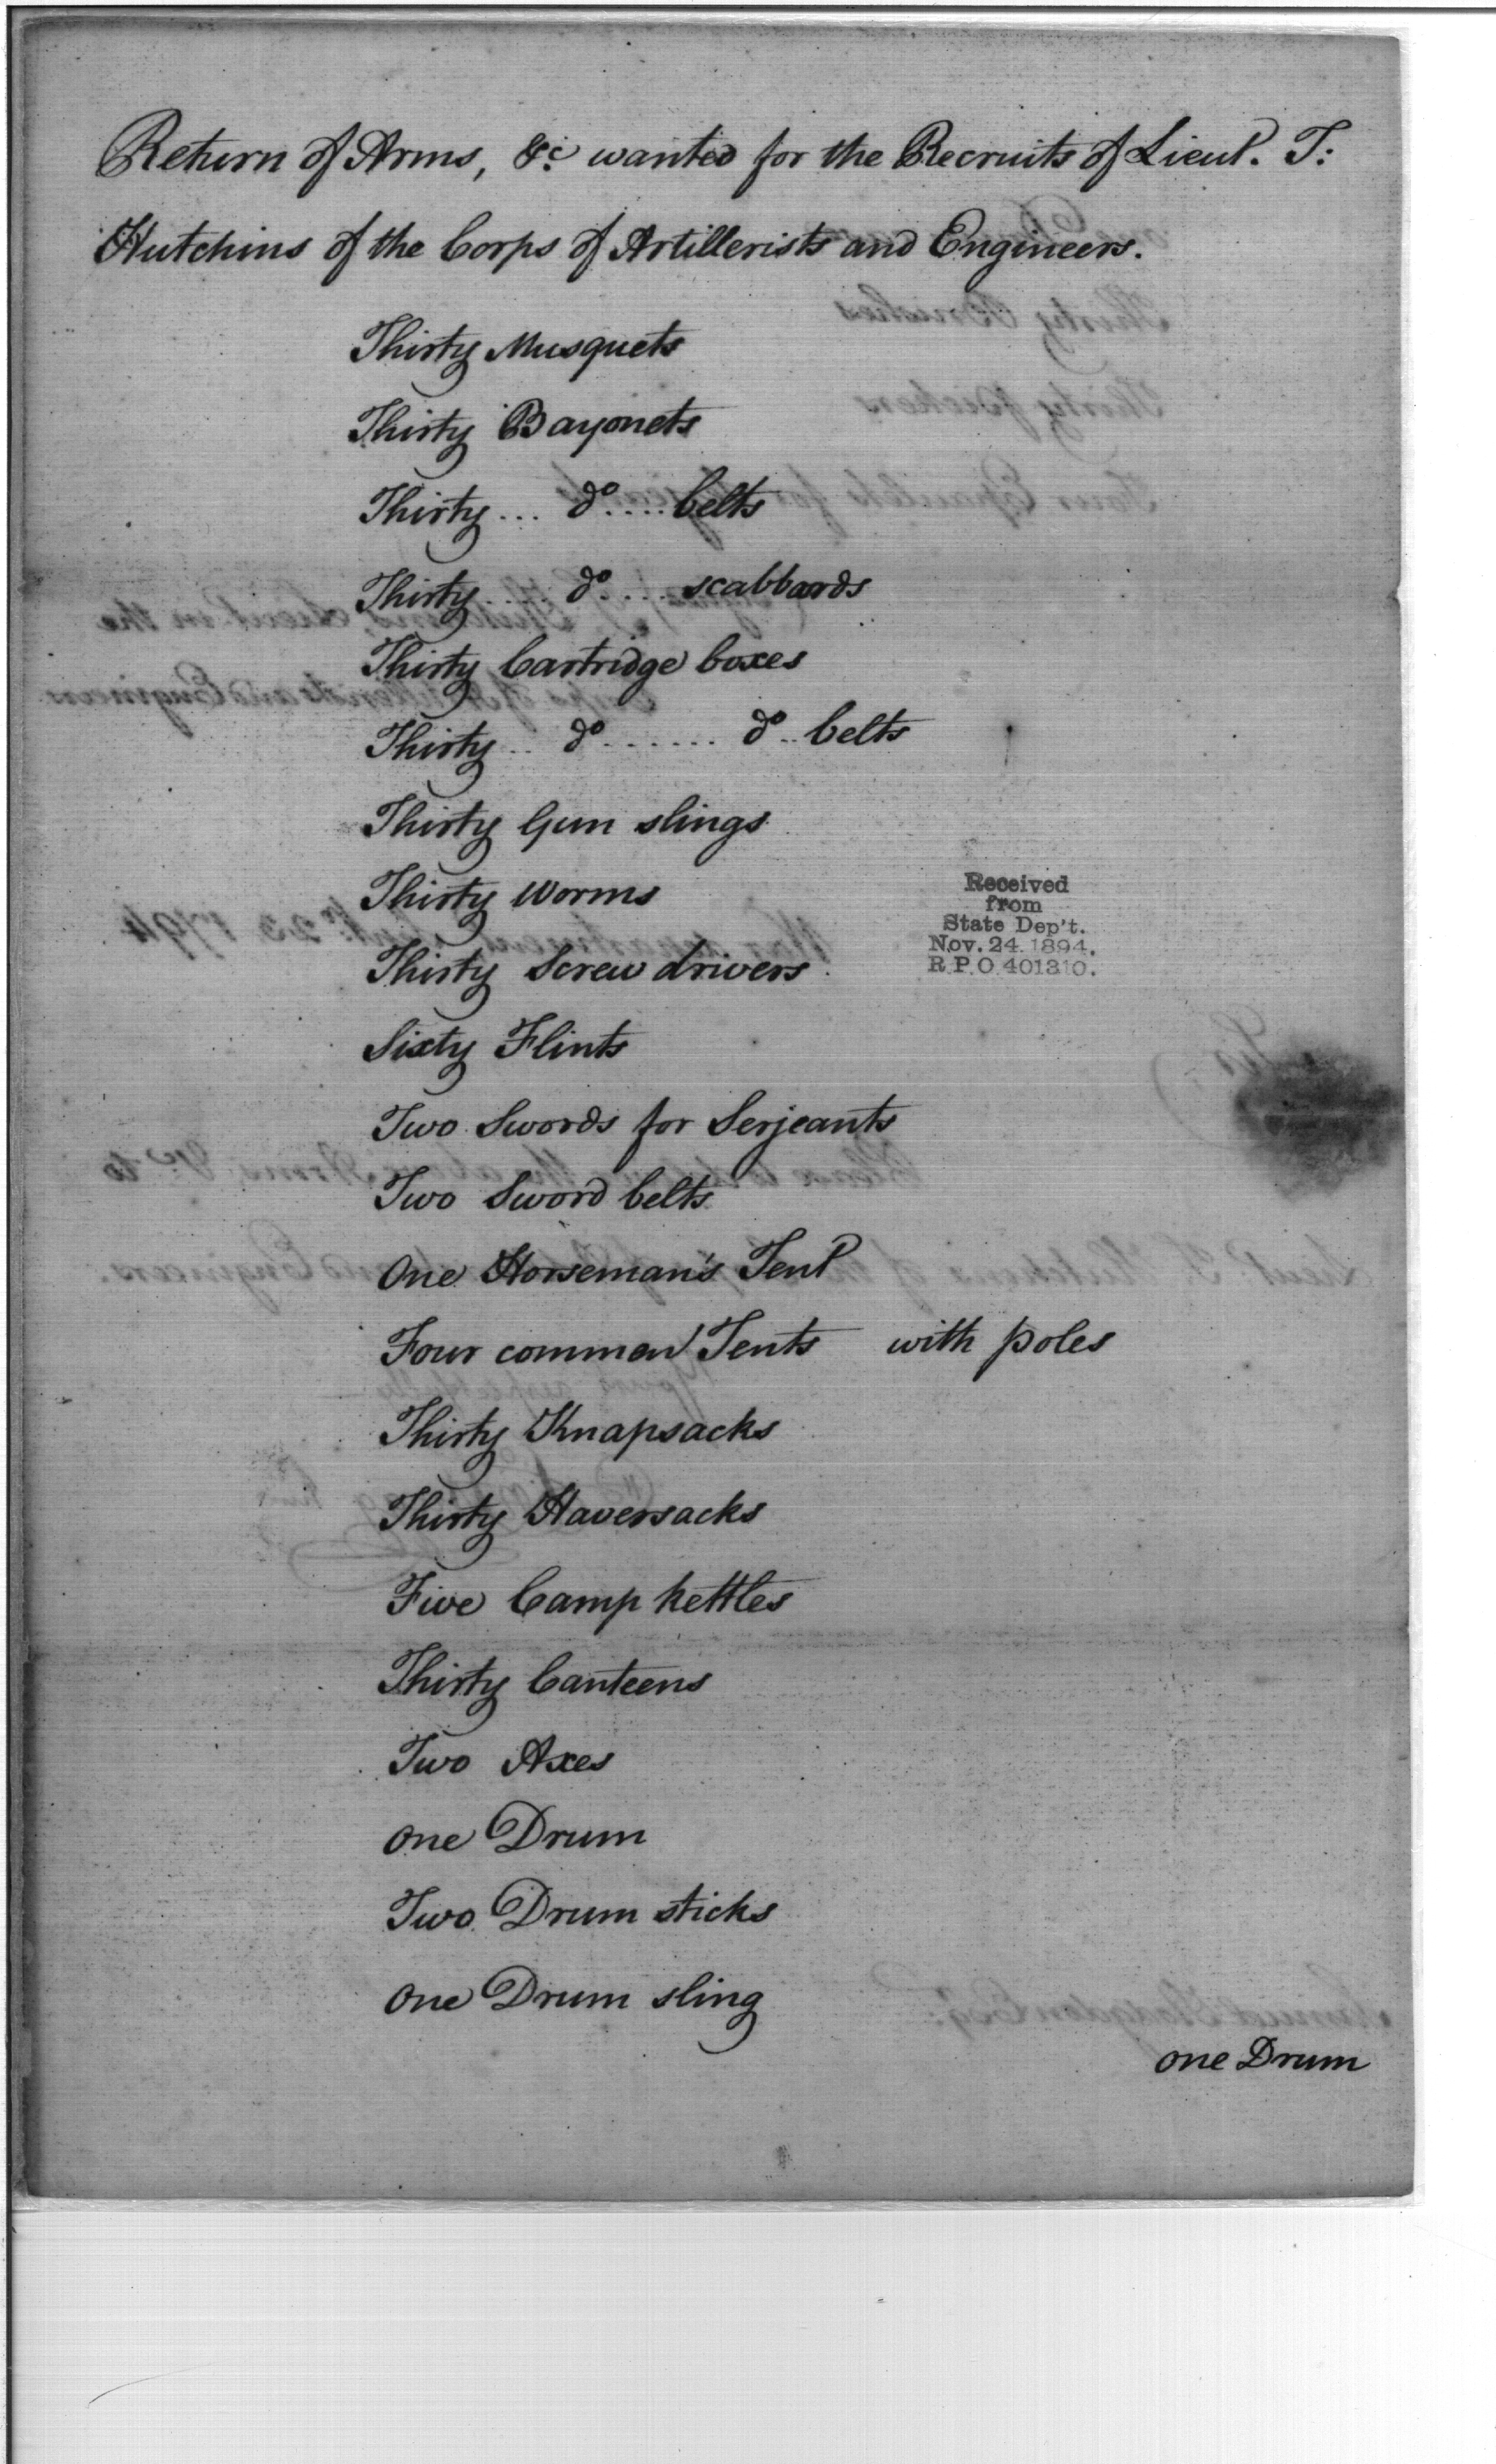 Return of Arms, &c. wanted for the Recruits of Lieut. T:
Hutchins of the Corps of Artillerists and Engineers.
Thirty Musquets
Thirty Bayonets
Thirty ... do .... belts
Thirty .... do .... scabbards
Thirty Cartridge boxes
Thirty .. do ....... do .. belts
Thirty Gun slings
Thirty Worms
Thirty Screw drivers
Sixty Flints
Two Swords for Serjeants
Two Sword belts
One Horseman's Tent
Four common Tents with poles
Thirty Knapsacks
Thirty Haversacks
Five Camp kettles
Thirty Canteens
Two Axes
one Drum
Two Drum sticks
one Drum sling
one Drum
Received
from
State Dep't.
Nov. 24. 1894.
R.P.O. 401310.